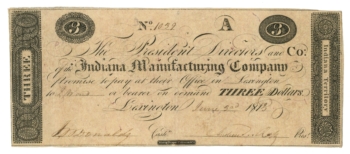 3 Nº 1029 A 3
The President Directors and Co:
Of the Indiana Manufacturing Company
Promise to pay at their Office in Lexington
to or bearer on demand THREE Dollars.
Lexington 181
THREE
Indiana Territory
Cash